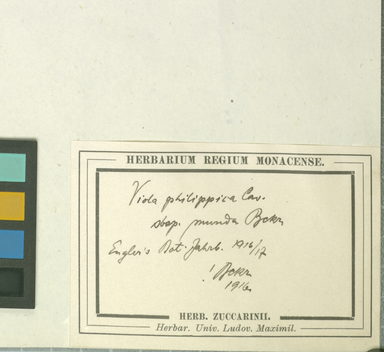 HERBARIUM REGIUM MONACENSE.
Viola philippica Cav.
sbsp. munda Beckr
Engler's Bot. Jahrb. 1916/17
! Beckr
1916
HERB. ZUCCARINII.
Herbar. Univ. Ludov. Maximil.